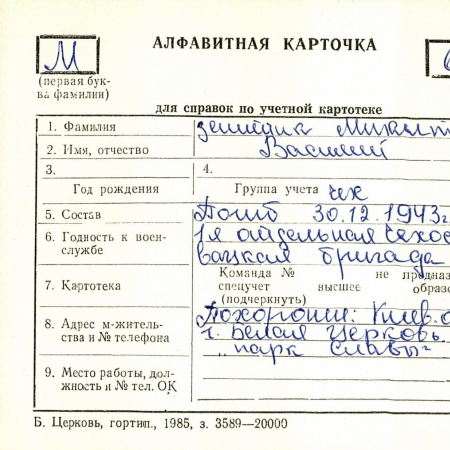 АЛФАВИТНАЯ КАРТОЧКА
М
(первая бук-
ва фамилии)
для справок по учетной картотеке
1. Фамилия
2. Имя, отчество Василий
3. 4.
Год рождения Группа учета чех
5. Состав Погиб 30.12.1943г
6. Годность к воен- 1я отдельная чехос
службе вацкая бригада
Команда № не предназ
7. Картотека спецучет высшее образо
(подчеркнуть)
8. Адрес м-житель- Похоронен: Киев. о
ства и № телефона г. Белая Церковь
„парк Славы"
9. Место работы, дол-
жность и № тел. ОК
Б. Церковь, гортип., 1985, з. 3589—20000